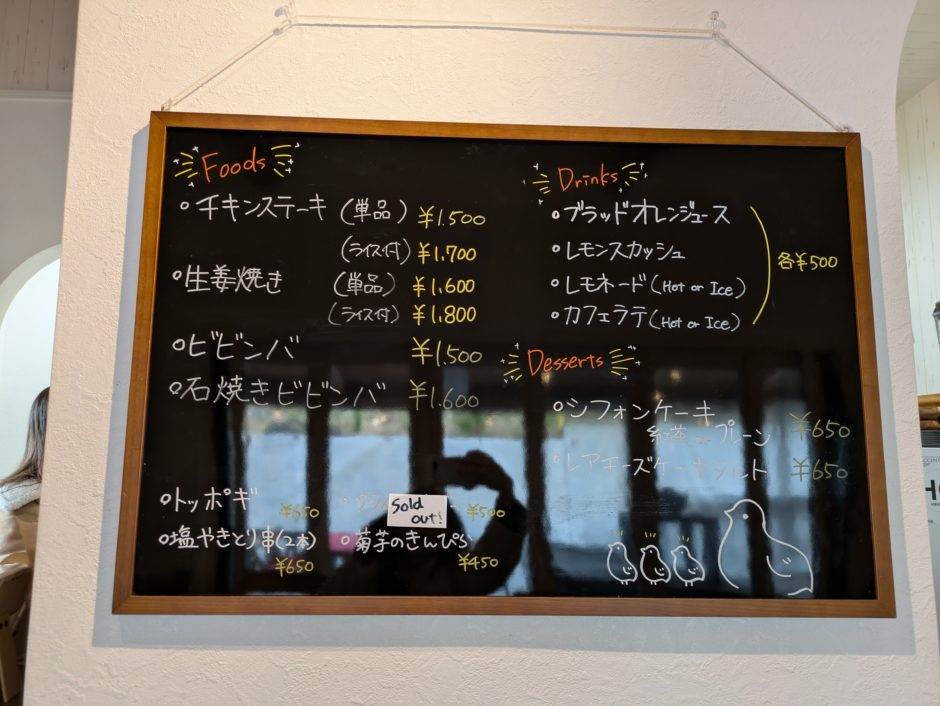 Foods
・チキンステーキ (単品) ¥1.500
(ライス付) ¥1.700
・生姜焼き (単品) ¥1.600
(ライス付) ¥1.800
・ビビンバ ¥1.500
・石焼きビビンバ ¥1.600
・トッポギ ¥650
・塩やきとり串(2本) ¥650
Sold out! ¥500
・菊芋のきんぴら ¥450
Drinks
・ブラッドオレンジュース
・レモンスカッシュ
・レモネード(Hot or Ice)
・カフェラテ(Hot or Ice)
各¥500
Desserts
・シフォンケーキ
紅茶 プレーン ¥650
・レアチーズケーキタルト ¥650